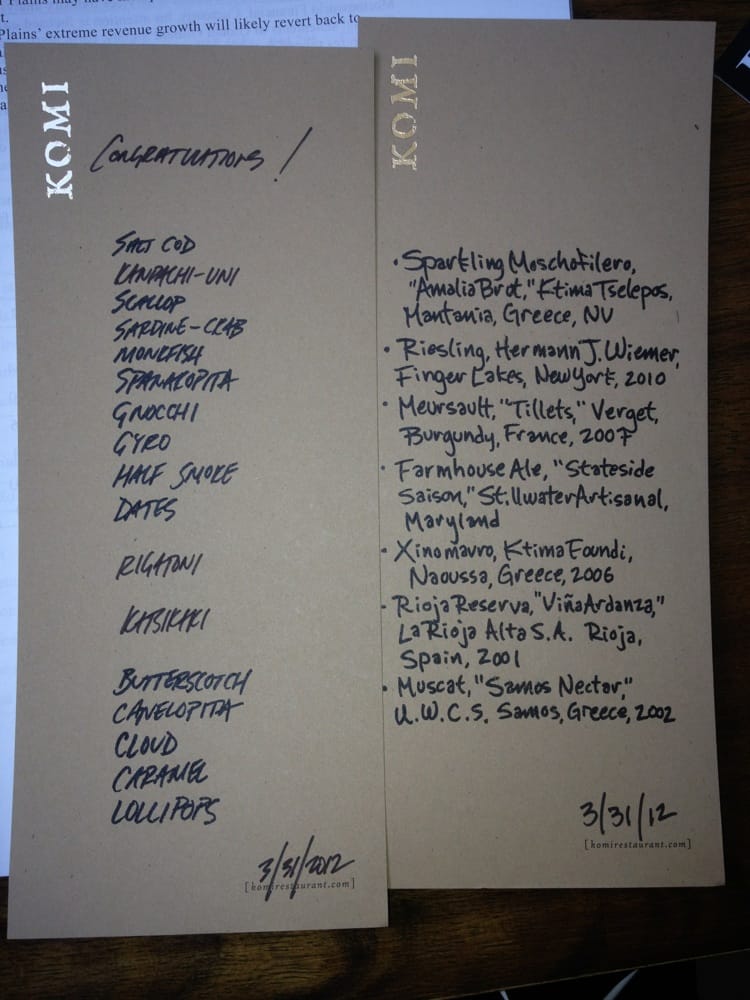 Plains may have
t.
Plains' extreme revenue growth will likely revert back to
KOMI
CONGRATULATIONS!
SALT COD
KANPACHI-UNI
SCALLOP
SARDINE-CRAB
MONKFISH
SPANAKOPITA
GNOCCHI
GYRO
HALF SMOKE
DATES
RIGATONI
KATSIKAKI
BUTTERSCOTCH
CANELOPITA
CLOUD
CARAMEL
LOLLIPOPS
3/31/2012
[komirestaurant.com]
KOMI
• Sparkling Moschofilero,
"Amalia Brut," Ktima Tselepos,
Mantania, Greece, NV
• Riesling, Hermann J. Wiemer,
Finger Lakes, New York, 2010
• Meursault, "Tillets," Verget,
Burgundy, France, 2007
• Farmhouse Ale, "Stateside
Saison," Stillwater Artisanal,
Maryland
• Xinomavro, Ktima Foundi,
Naoussa, Greece, 2006
• Rioja Reserva, "Viña Ardanza,"
La Rioja Alta S.A. Rioja,
Spain, 2001
• Muscat, "Samos Nectar,"
U.W.C.S. Samos, Greece, 2002
3/31/12
[komirestaurant.com]